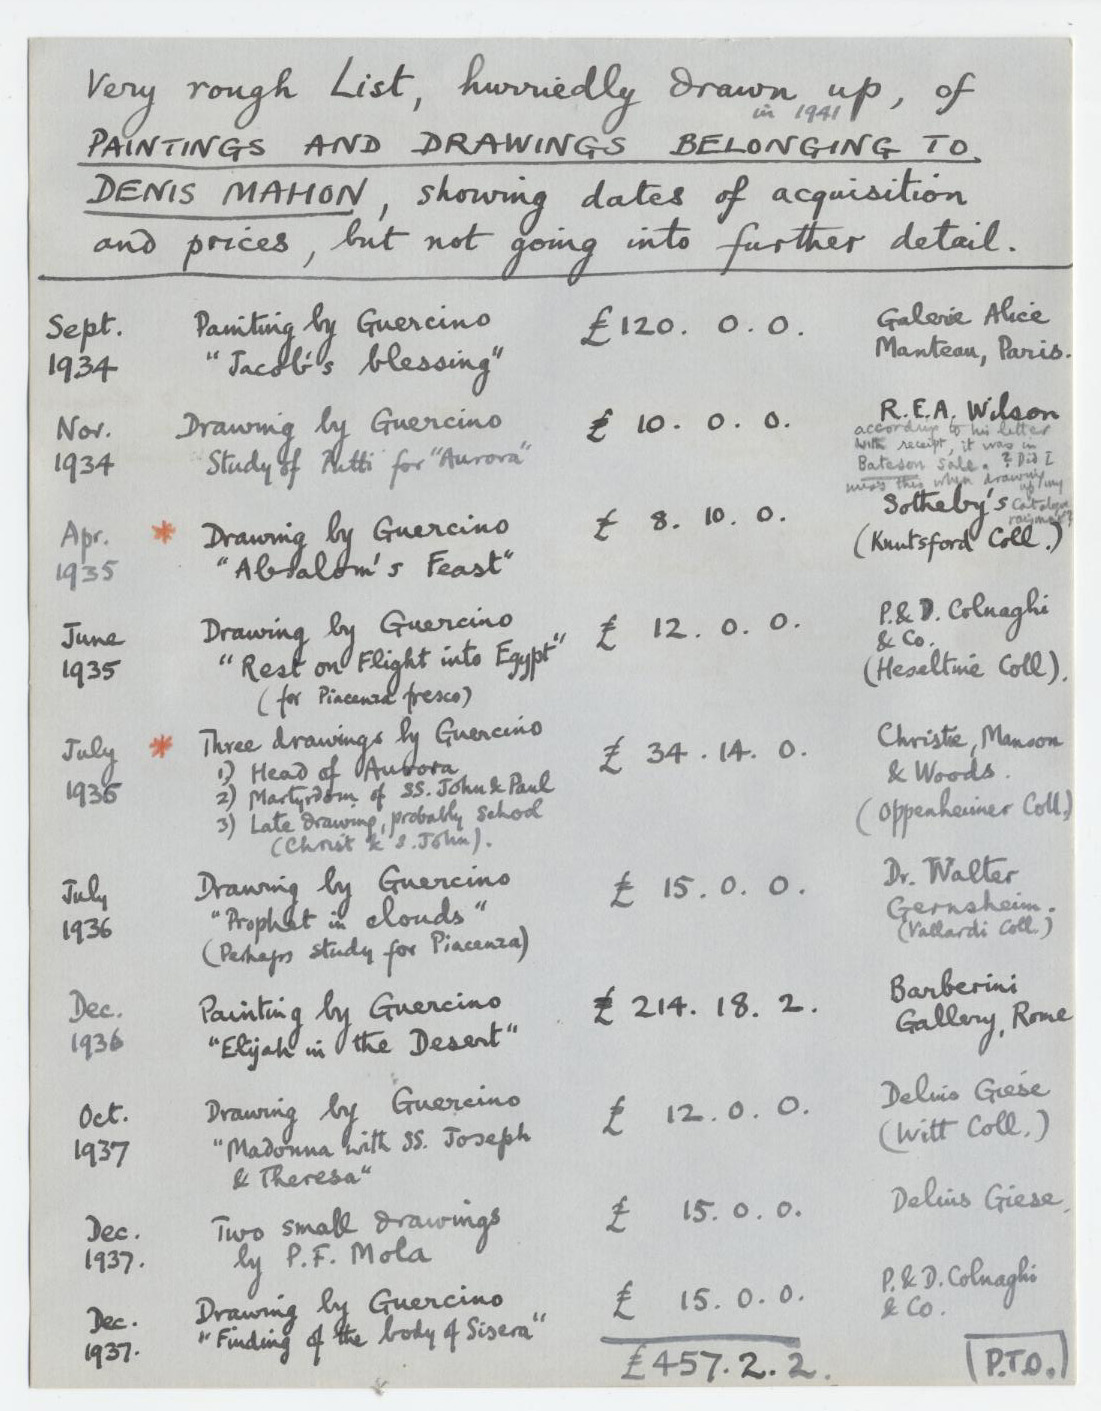 Very rough List, hurriedly drawn up, of
in 1941
PAINTINGS AND DRAWINGS BELONGING TO
DENIS MAHON, showing dates of acquisition
and prices, but not going into further detail.
Sept. 1934
Painting by Guercino
"Jacob's blessing"
£120. 0. 0.
Galerie Alice
Manteau, Paris.
Nov. 1934
Drawing by Guercino
Study of Putti for "Aurora"
£ 10. 0. 0.
R.E.A. Wilson
according to his letter
with receipt, it was in
Bateson Sale. ? Did I
miss this when drawing
up my
Catalogue
raisonné?
Apr. 1935
* Drawing by Guercino
"Absalom's Feast"
£ 8. 10. 0.
Sotheby's
(Knutsford Coll.)
June 1935
Drawing by Guercino
"Rest on Flight into Egypt"
(for Piacenza fresco)
£ 12. 0. 0.
P. & D. Colnaghi
& Co.
(Heseltine Coll).
July 1936
* Three drawings by Guercino
1) Head of Aurora
2) Martyrdom of SS. John & Paul
3) Late drawing, probably school
(Christ & S. John).
£ 34. 14. 0.
Christie, Manson
& Woods.
(Oppenheimer Coll.)
July 1936
Drawing by Guercino
"Prophet in clouds"
(Perhaps study for Piacenza)
£ 15. 0. 0.
Dr. Walter
Gernsheim.
(Vallardi Coll.)
Dec. 1936
Painting by Guercino
"Elijah in the Desert"
£ 214. 18. 2.
Barberini
Gallery, Rome
Oct. 1937
Drawing by Guercino
"Madonna with SS. Joseph
& Theresa"
£ 12. 0. 0.
Delius Giese
(Witt Coll.)
Dec. 1937.
Two small drawings
by P.F. Mola
£ 15. 0. 0.
Delius Giese.
Dec. 1937.
Drawing by Guercino
"Finding of the body of Sisera"
£ 15. 0. 0.
P. & D. Colnaghi
& Co.
£457. 2. 2.
P.T.O.